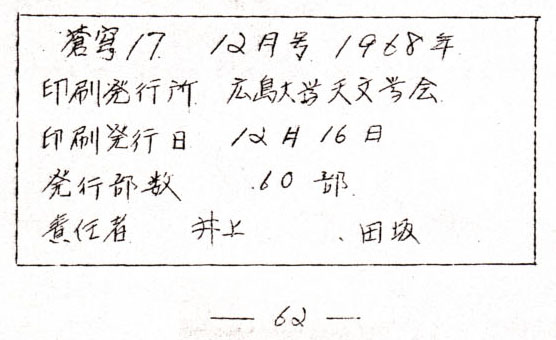 蒼穹17 12月号 1968年
印刷発行所 広島大学天文学会
印刷発行日 12月16日
発行部数 60部
責任者 井上、田坂
— 62 —